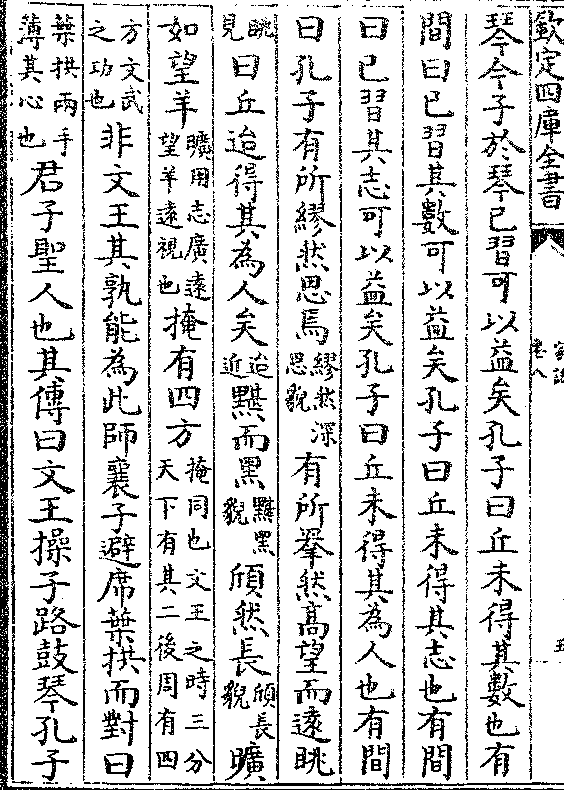 欽定四庫全書 卷八 五
琴今子於琴已習可以益矣孔子曰丘未得其數也有
間曰已習其數可以益矣孔子曰丘未得其志也有間
曰已習其志可以益矣孔子曰丘未得其為人也有間
曰孔子有所繆然思焉繆然深思貌有所睪然高望而遠眺
眺見曰丘迨得其為人矣迨近黮而黑黮黑貌頎然長頎長貌曠
如望羊曠用志廣遠望羊遠視也掩有四方掩同也文王之時三分天下有其二後周有四
方文武之功也非文王其孰能為此師襄子避席葉拱而對曰
葉拱兩手薄其心也君子聖人也其傳曰文王操子路鼓琴孔子